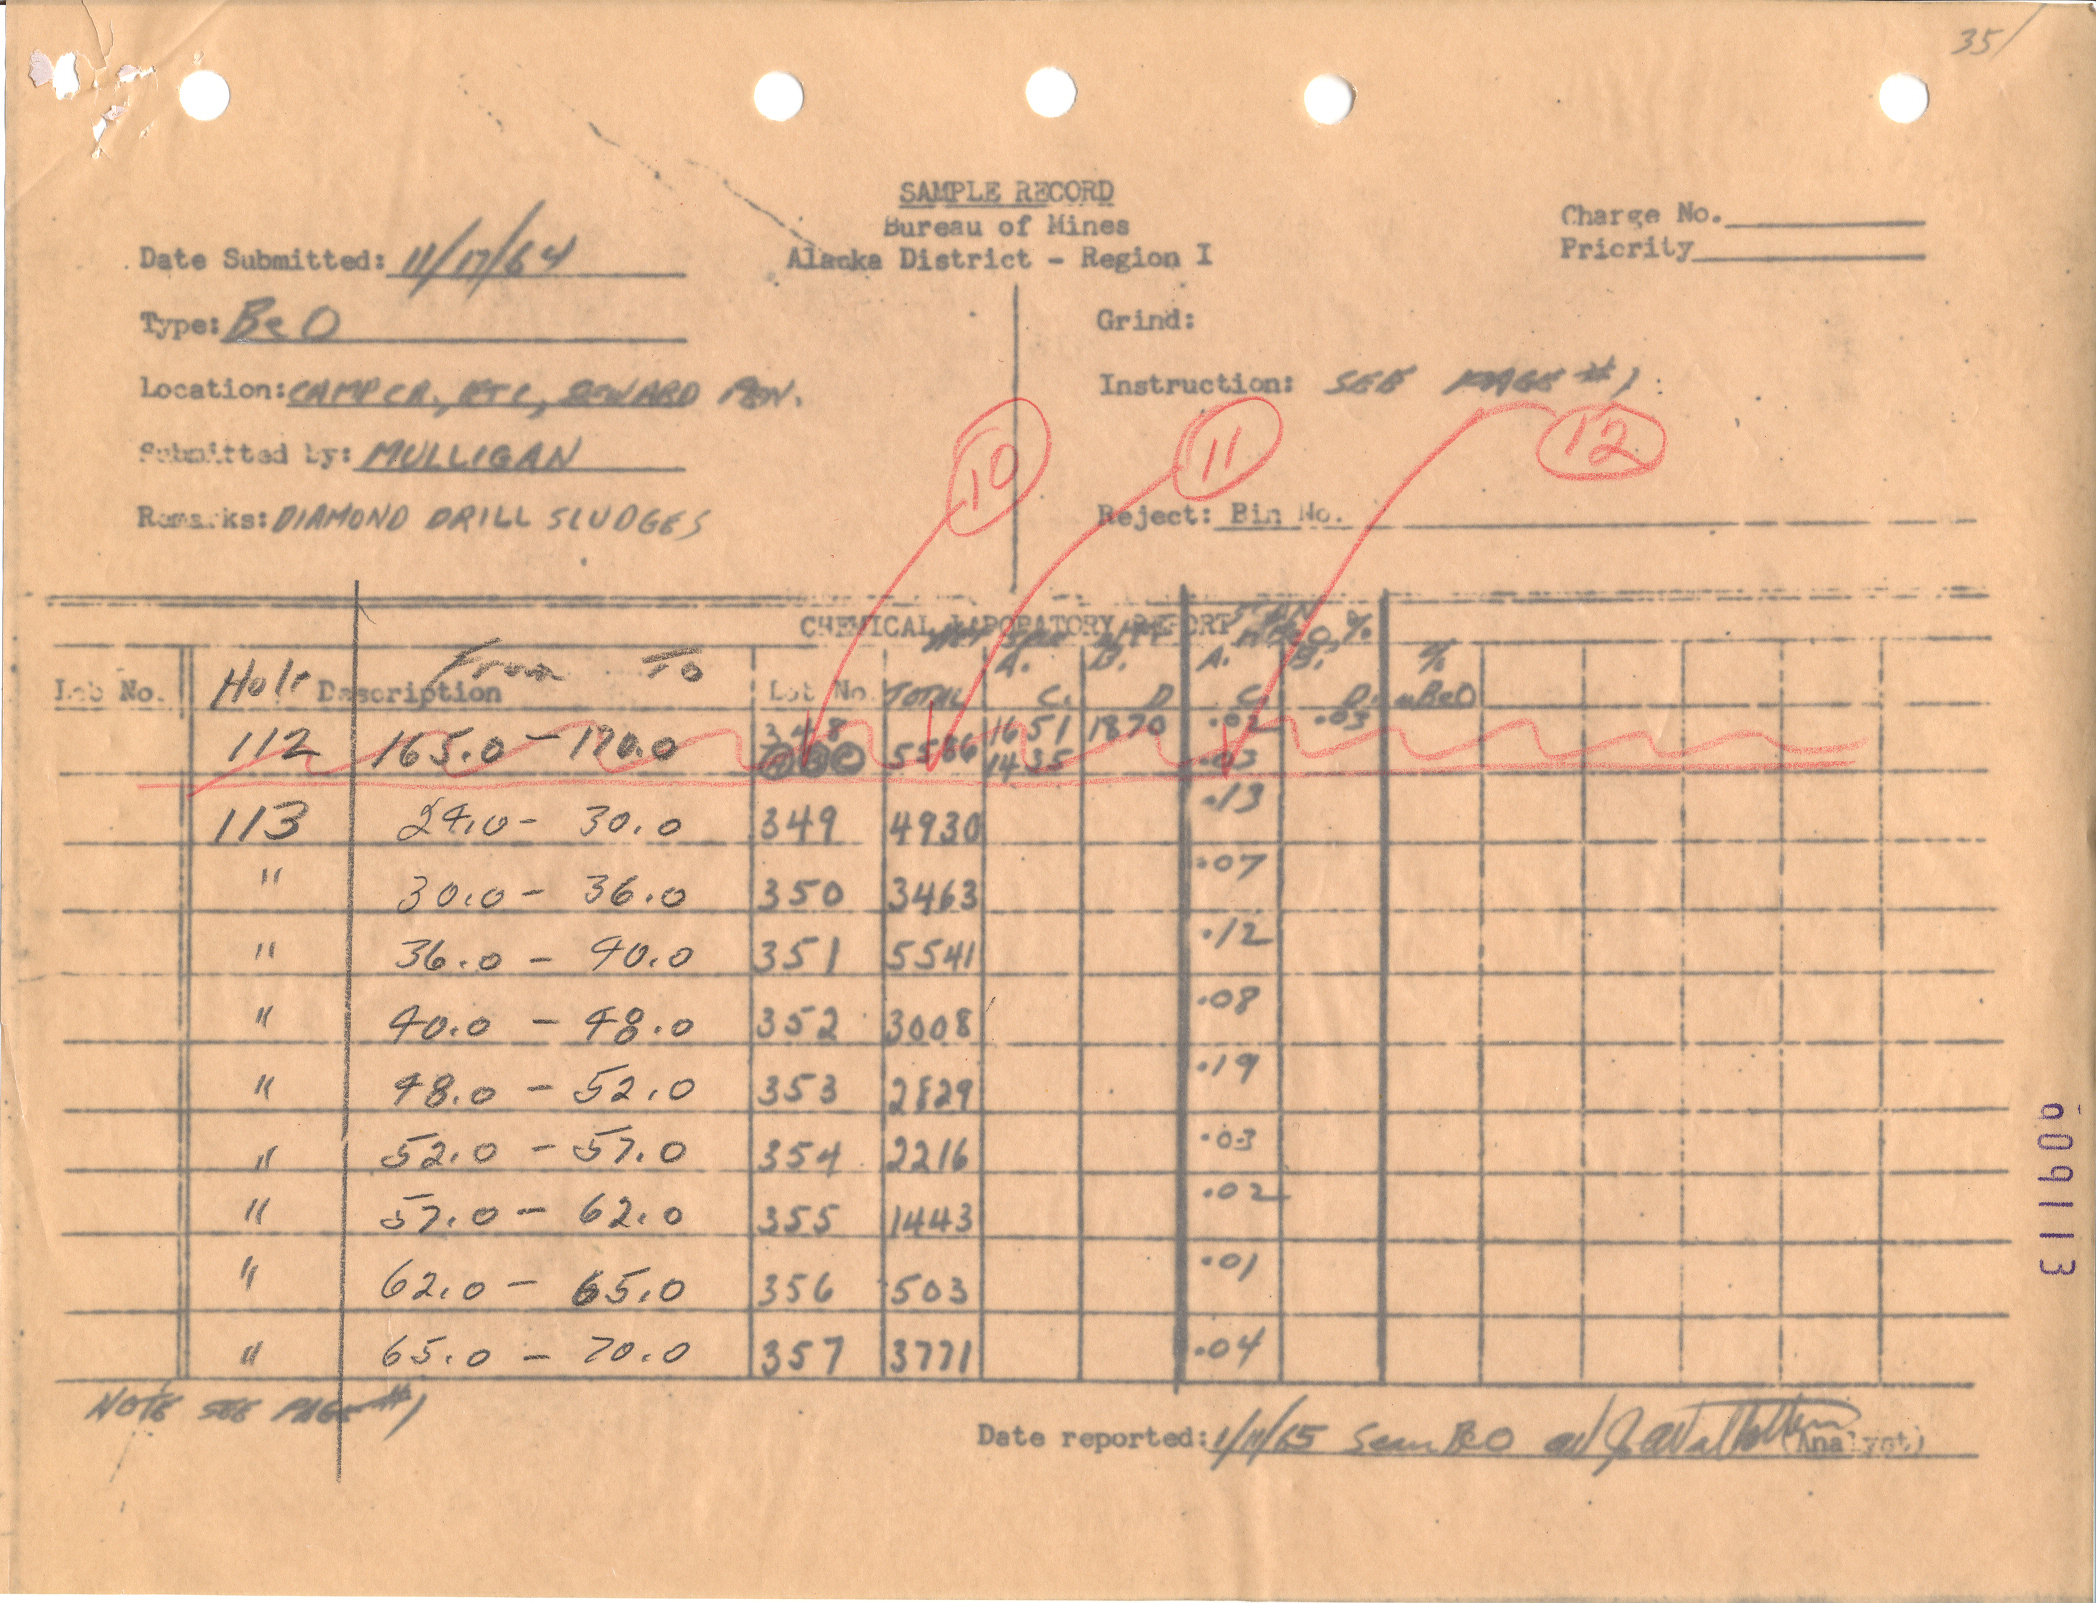 35/
SAMPLE RECORD
Bureau of Mines
Alaska District - Region I
Charge No.
Priority
Date Submitted: 11/17/64
Type: BeO
Grind:
Location: CAMP CR., ETC, SEWARD PEN.
Instruction: SEE PAGE #1
Submitted by: MULLIGAN
10 11 12
Remarks: DIAMOND DRILL SLUDGES
Reject: Bin No.
CHEMICAL LABORATORY REPORT
Lab No. Hole Description From To Lot No. TOTAL A. C. B. D A. C. B. D. % BeO
112 165.0 - 170.0 348 5586 1651 1870 .02 .03
A B C 1435 .03
113 24.0 - 30.0 349 4930 .13
" 30.0 - 36.0 350 3463 .07
" 36.0 - 40.0 351 5541 .12
" 40.0 - 48.0 352 3008 .08
" 48.0 - 52.0 353 2829 .19
" 52.0 - 57.0 354 2216 .03
" 57.0 - 62.0 355 1443 .02
" 62.0 - 65.0 356 503 .01
" 65.0 - 70.0 357 3771 .04
NOTE SEE PAGE #1
Date reported: 1/11/65 Scan BeO (Analyst)
009113